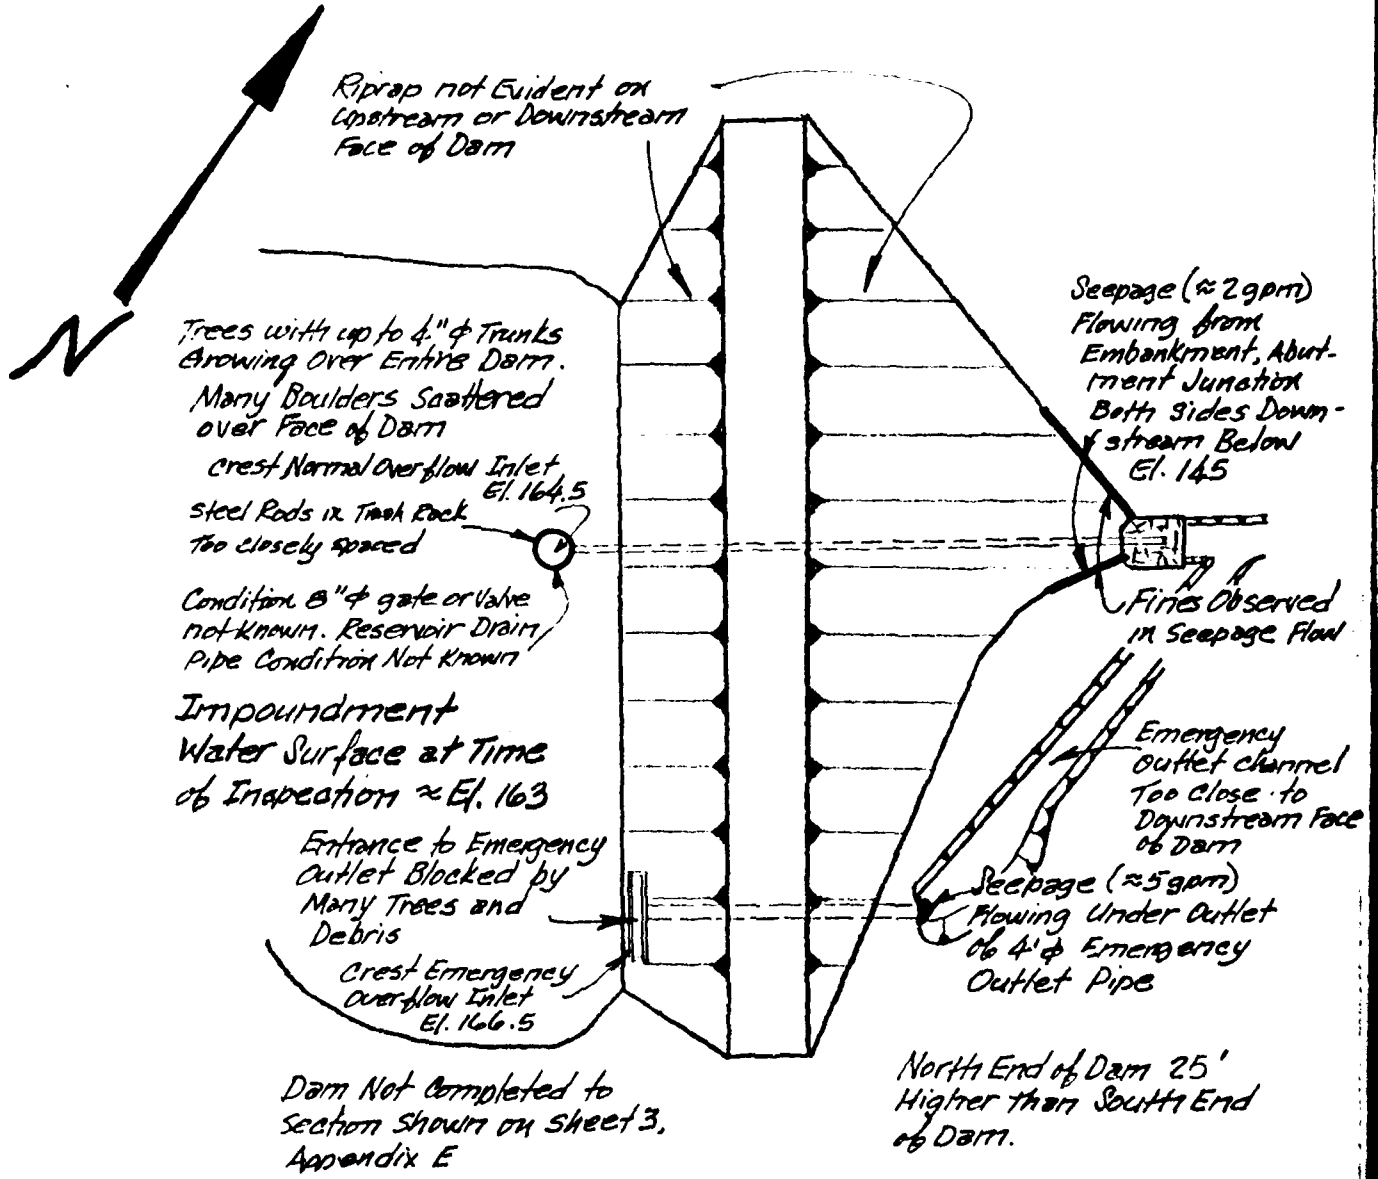 Riprap not Evident on
Upstream or Downstream
Face of Dam
N
Trees with up to 4"φ Trunks
Growing Over Entire Dam.
Many Boulders Scattered
over Face of Dam
Crest Normal Overflow Inlet
El. 164.5
Steel Rods in Trash Rack
Too closely spaced
Condition 8"φ gate or valve
not known. Reservoir Drain
Pipe Condition Not Known
Impoundment
Water Surface at Time
of Inspection ≈ El. 163
Entrance to Emergency
Outlet Blocked by
Many Trees and
Debris
Crest Emergency
Overflow Inlet
El. 166.5
Dam Not Completed to
Section Shown on Sheet 3,
Appendix E
Seepage (≈2gpm)
Flowing from
Embankment, Abut-
ment Junction
Both Sides Down-
stream Below
El. 145
Fines Observed
in Seepage Flow
Emergency
Outlet channel
Too Close to
Downstream Face
of Dam
Seepage (≈5gpm)
Flowing Under Outlet
of 4'φ Emergency
Outlet Pipe
North End of Dam 25'
Higher than South End
of Dam.